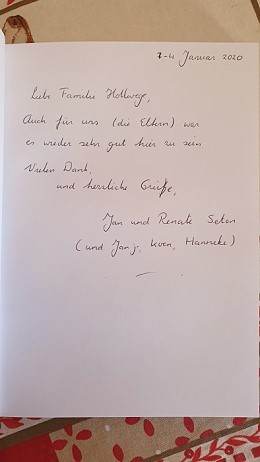 Januar 2020
Liebe Familie Hollwege,
Auch für uns (die Eltern) war
es wieder sehr gut hier zu sein
Vielen Dank,
und herzliche Grüße,
Jan und Renate
(und Jan jr, Koen, Hanneke)